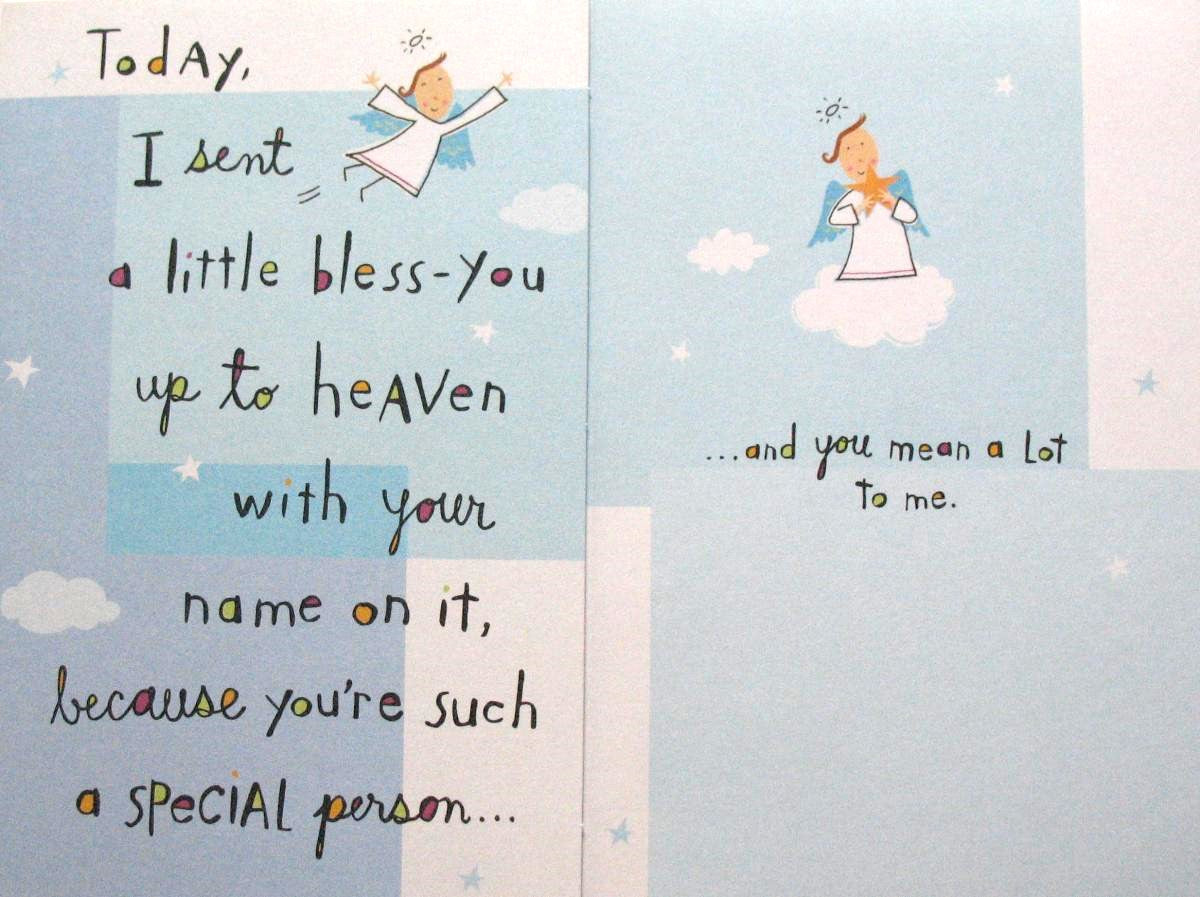 Today,
I sent
a little bless-you
up to heAVen
with your
name on it,
because you're such
a SPeCiAL person...
...and you mean a Lot
to me.